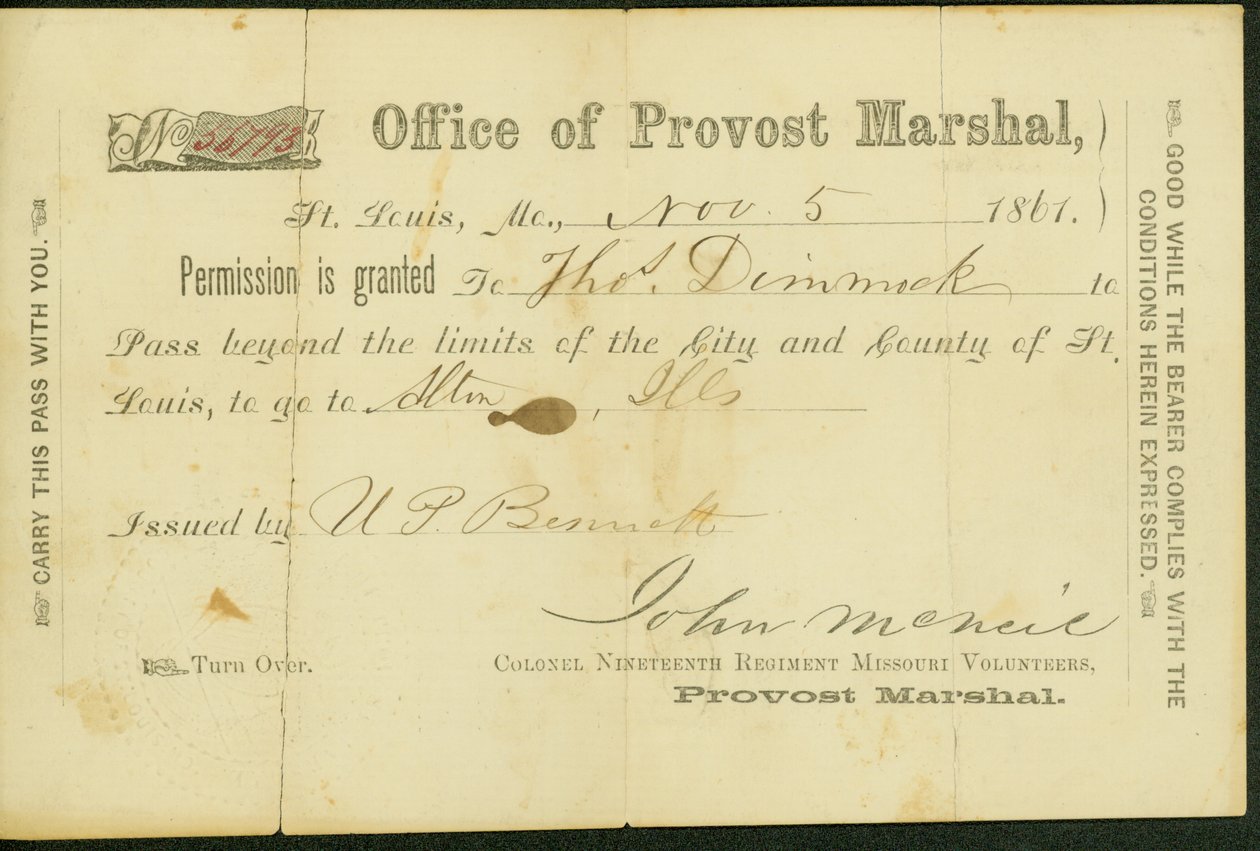 No 36793
Office of Provost Marshal,
St. Louis, Mo., Nov. 5 1861.
Permission is granted To Thos. Dimmock to
Pass beyond the limits of the City and County of St.
Louis, to go to Alton, Ills
Issued by U P. Bennett
John McNeil
Colonel Nineteenth Regiment Missouri Volunteers,
Provost Marshal.
Turn Over.
CARRY THIS PASS WITH YOU.
GOOD WHILE THE BEARER COMPLIES WITH THE
CONDITIONS HEREIN EXPRESSED.